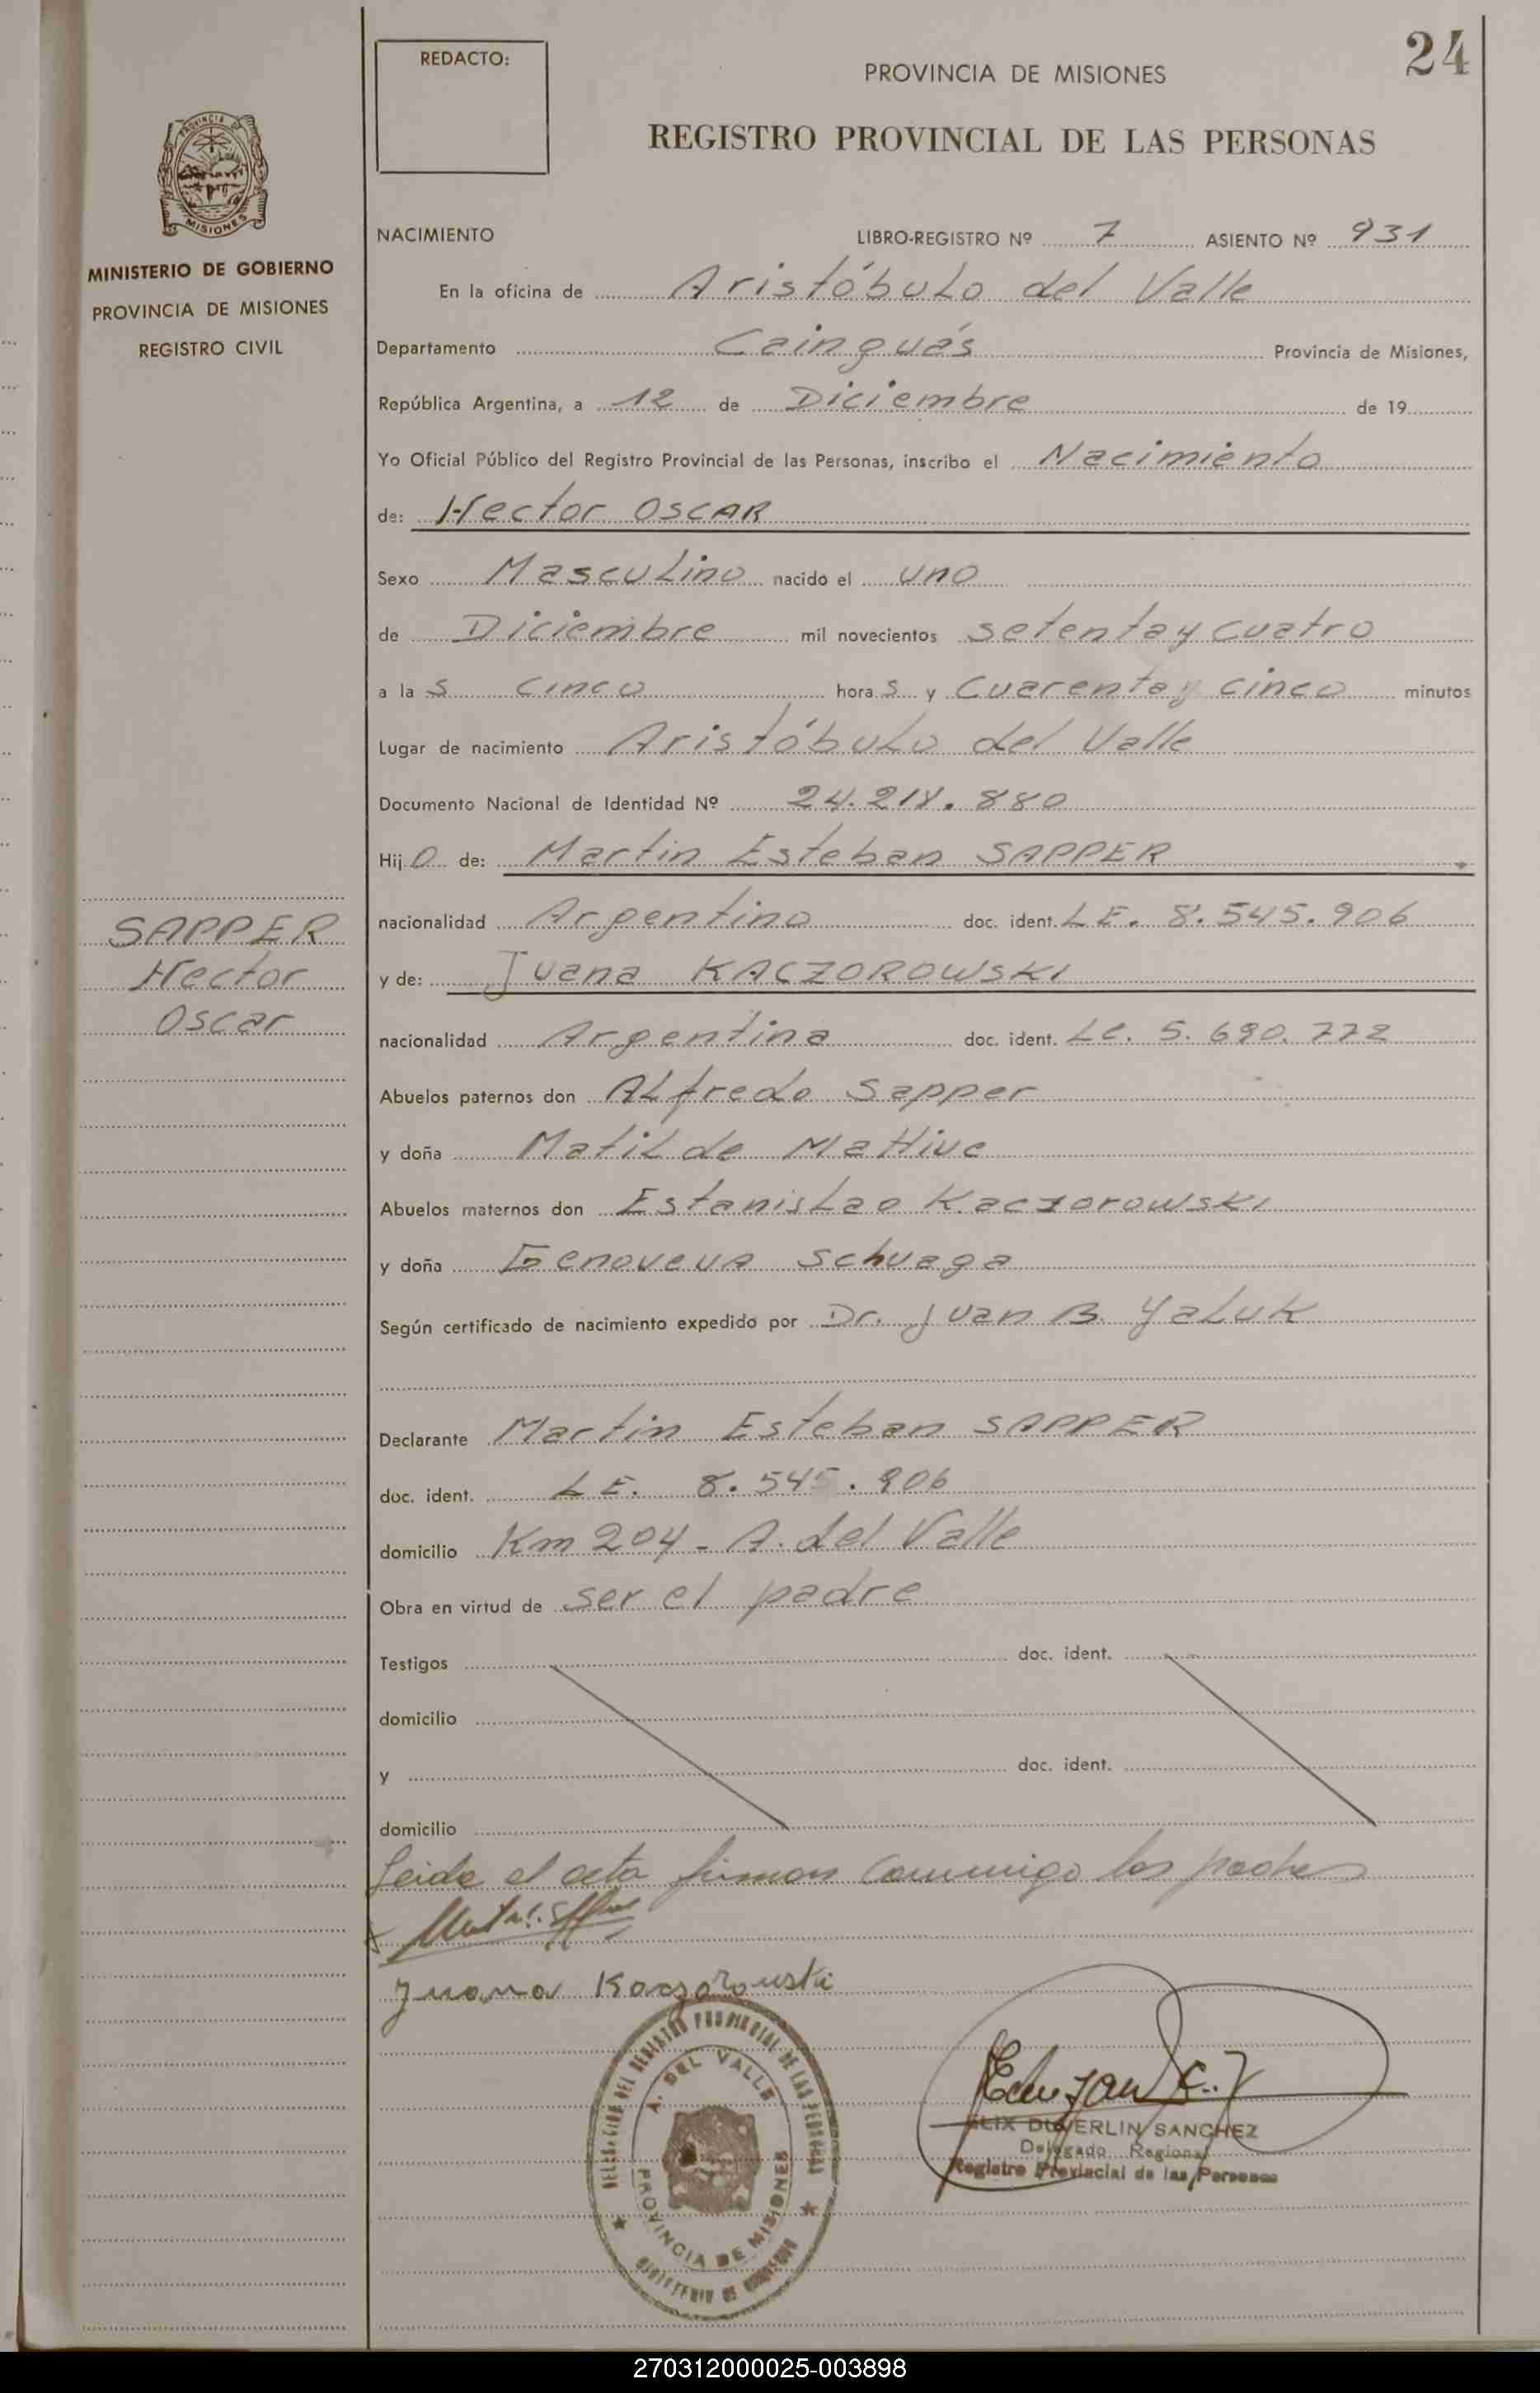 24
REDACTO:
PROVINCIA DE MISIONES
REGISTRO PROVINCIAL DE LAS PERSONAS
PROVINCIA DE
MISIONES
MINISTERIO DE GOBIERNO
PROVINCIA DE MISIONES
REGISTRO CIVIL
NACIMIENTO LIBRO-REGISTRO Nº 7 ASIENTO Nº 931
En la oficina de Aristóbulo del Valle
Departamento Cainguás Provincia de Misiones,
República Argentina, a 12 de Diciembre de 19
Yo Oficial Público del Registro Provincial de las Personas, inscribo el Nacimiento
de: Hector OSCAR
Sexo Masculino nacido el uno
de Diciembre mil novecientos setenta y cuatro
a la s cinco hora s y Cuarenta y cinco minutos
Lugar de nacimiento Aristóbulo del Valle
Documento Nacional de Identidad Nº 24.218.880
Hij o de: Martin Esteban SAPPER
nacionalidad Argentino doc. ident. L E. 8.545.906
y de: Juana KACZOROWSKI
nacionalidad Argentina doc. ident. L C. 5.690.772
SAPPER
Hector
Oscar
Abuelos paternos don Alfredo Sapper
y doña Matilde Mattiuc
Abuelos maternos don Estanislao Kaczorowski
y doña Genoveva Schuaga
Según certificado de nacimiento expedido por Dr. Juan B. Yaluk
Declarante Martin Esteban SAPPER
doc. ident. L E. 8.545.906
domicilio Km 204 - A. del Valle
Obra en virtud de ser el padre
Testigos doc. ident.
domicilio
y doc. ident.
domicilio
Leida el acta firman conmigo los padres
Juana Kaczorouski
DELEGACION DEL REGISTRO PROVINCIAL DE LAS PERSONAS
A. DEL VALLE
PROVINCIA DE MISIONES
MINISTERIO DE GOBIERNO
SANCHEZ
Delegado Regional
Registro Provincial de las Personas
270312000025-003898